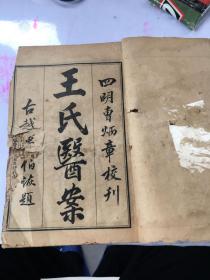 四明曹炳章校刊
王氏醫案
古越
伯 題